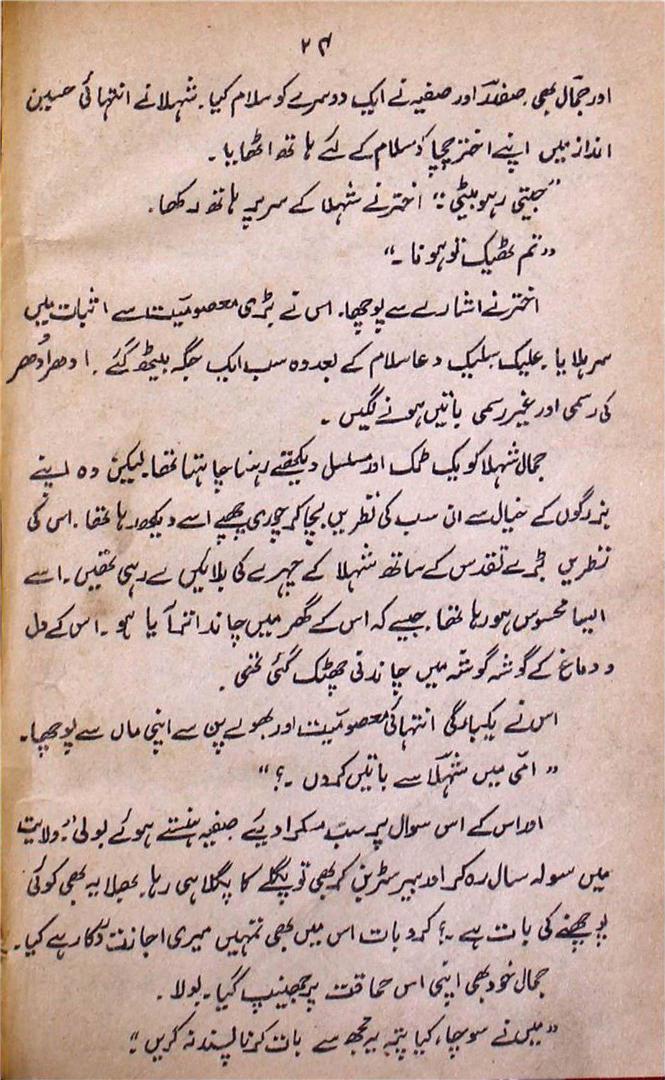 ۲۴
اور جمال بھی۔ صفدر اور صفیہ نے ایک دوسرے کو سلام کیا۔ شہلا نے انتہائی حسین
انداز میں اپنے اختر چچا کو سلام کے لئے ہاتھ اٹھایا۔
”جیتی رہو بیٹی“؛ اختر نے شہلا کے سر پر ہاتھ رکھا۔
”تم ٹھیک تو ہو نا۔“
اختر نے اشارے سے پوچھا۔ اس نے بڑی معصومیت سے اثبات میں
سر ہلایا۔ علیک سلیک دعا سلام کے بعد وہ سب ایک جگہ بیٹھ گئے۔ ادھر اُدھر
کی رسمی اور غیر رسمی باتیں ہونے لگیں۔
جمال شہلا کو یک ٹک اور مسلسل دیکھتے رہنا چاہتا تھا۔ لیکن وہ اپنے
بزرگوں کے خیال سے ان سب کی نظریں بچا کر چوری چھپے اسے دیکھ رہا تھا۔ اس کی
نظریں بڑے تقدس کے ساتھ شہلا کے چہرے کی بلائیں لے رہی تھیں۔ اسے
ایسا محسوس ہو رہا تھا۔ جیسے کہ اس کے گھر میں چاند اتر آیا ہو۔ اس کے دل
و دماغ کے گوشہ گوشہ میں چاندنی چھٹک گئی تھی۔
اس نے یکبارگی انتہائی معصومیت اور بھولے پن سے اپنی ماں سے پوچھا۔
”امّی میں شہلا سے باتیں کروں۔؟“
اور اس کے اس سوال پر سب مسکرا دیئے صفیہ ہنستے ہوئے بولی ”ولایت
میں سولہ سال رہ کر اور بیرسٹر بن کر بھی تو پگلے کا پگلا ہی رہا۔ بھلا یہ بھی کوئی
پوچھنے کی بات ہے۔؟ کرو بات اس میں بھی تمہیں میری اجازت درکار ہے کیا۔
جمال خود بھی اپنی اس حماقت پر جھینپ گیا۔ بولا۔
”میں نے سوچا، کیا پتہ یہ مجھ سے بات کرنا پسند نہ کریں“؛